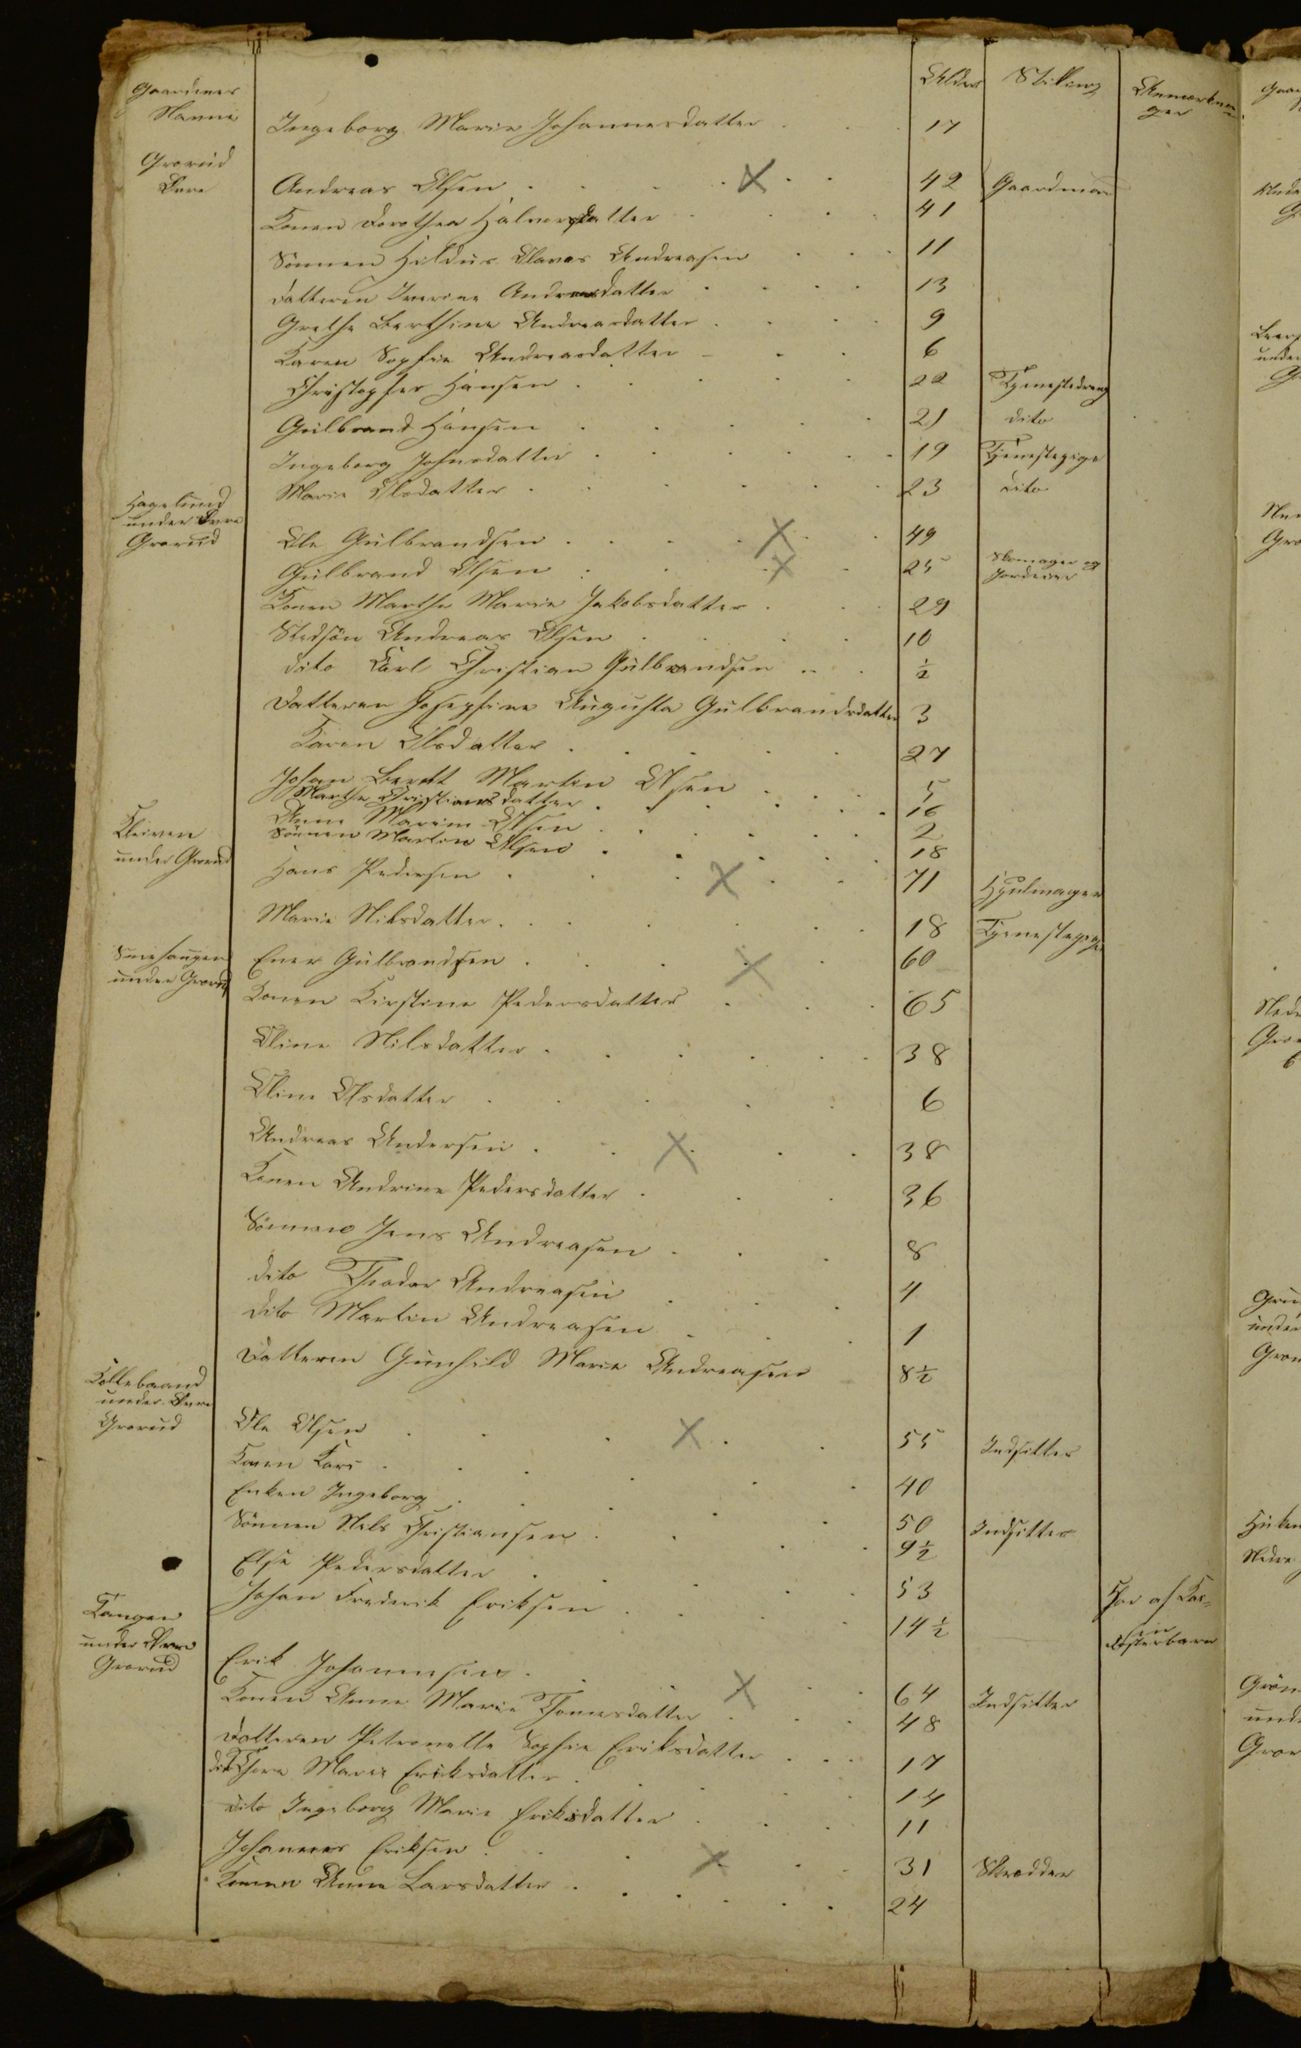 Gaardenes Navne Alder Stilling Anmærkninger
Ingeborg Marie Johannesdatter 17
Grorud Øvre Andreas Olsen 42 Gaardmand
Konen Dorothea Halvorsdatter 41
Sønnen Hildus Olaves Andreasen 11
Datteren Iverine Andreasdatter 13
Grethe Berthine Andreasdatter 9
Karen Sophie Andreasdatter 6
Christopher Hansen 22 Tjenestedreng
Gulbrand Hansen 21 dito
Ingeborg Johnsdatter 19 Tjenestepige
Marie Olsdatter 23 dito
Hagelund under Øvre Grorud
Ole Gulbrandsen 49
Gulbrand Olsen 25 Skomager og Jordeier
Konen Marthe Marie Jakobsdatter 29
Stedsøn Andreas Olsen 10
dito Carl Christian Gulbrandsen ½
Datteren Josephine Augusta Gulbrandsdatter 3
Karen Olsdatter 27
Johan Berntt Martin Olsen 5
Marthe Christiansdatter 16
Anne Olsen 2
Sønnen Martin Olsen 18
under Grorud Hans Pedersen 71 Hjulmager
Marie Nilsdatter 18 Tjenestepige
under Grorud Ener Gulbrandsen 60
Konen Kirstine Pedersdatter 65
Oline Nilsdatter 38
Oline Olsdatter 6
Andreas Andersen 38
Konen Andrine Pedersdatter 36
Sønnen Jens Andreasen 8
dito Theodor Andreasen 4
dito Martin Andreasen 1
Datteren Gunhild Marie Andreasen 8½
Kollebraand under Øvre Grorud
Ole Olsen 55 Indsitter
Konen Kari 40
Enken Ingeborg 50 Indsitter
Sønnen Nils Christiansen 9½
Else Pedersdatter 53
Johan Frederik Eriksen 14½
Tangen under Øvre Grorud
Erik Johannesen 64 Indsitter
Konen Anne Marie Thomesdatter 48
Datteren Petronelle Sophie Eriksdatter 17
dito Marie Eriksdatter 14
dito Ingeborg Marie Eriksdatter 11
Johannes Eriksen 31 Skrædder
Konen Anne Larsdatter 24